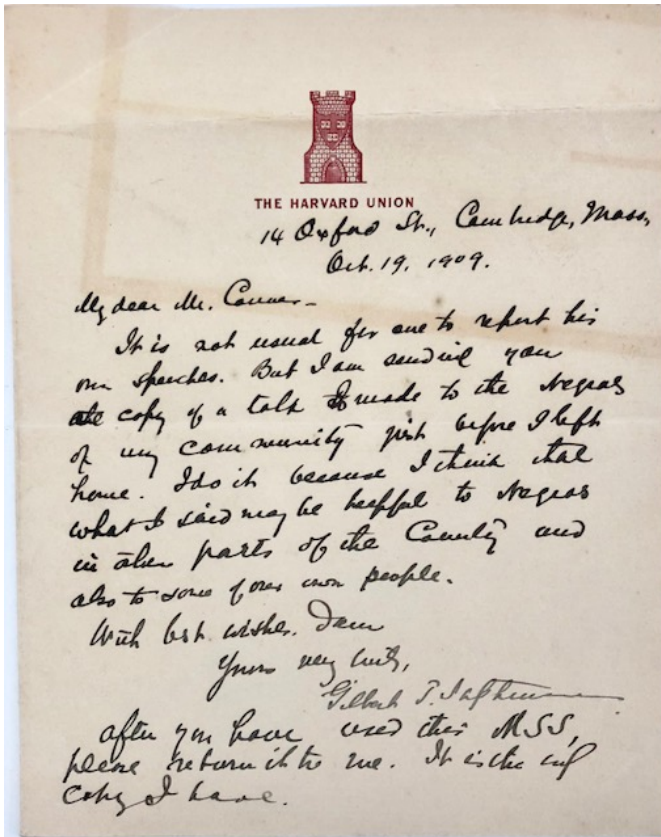 THE HARVARD UNION
14 Oxford St., Cambridge, Mass,
Oct. 19, 1909.
My dear Mr. Conner -
It is not usual for one to report his
own speeches. But I am sending you
the copy of a talk I made to the Negroes
of my community just before I left
home. I do it because I think that
what I said may be helpful to Negroes
in other parts of the County and
also to some of our own people.
With best wishes. I am
Yours very truly,
Gilbert T.
After you have used this MSS,
please return it to me. It is the only
copy I have.